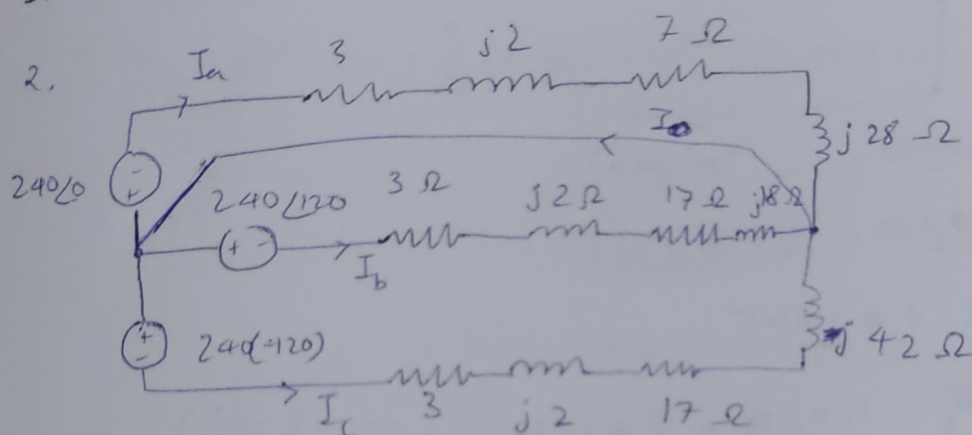 2.
Ia
3
j2
7 Ω
I
j 28 Ω
240∠0
-
+
240∠120
3 Ω
j2Ω
17 Ω
j18Ω
+ -
Ib
+
-
240(-120)
j 42 Ω
Ic
3
j2
17 Ω